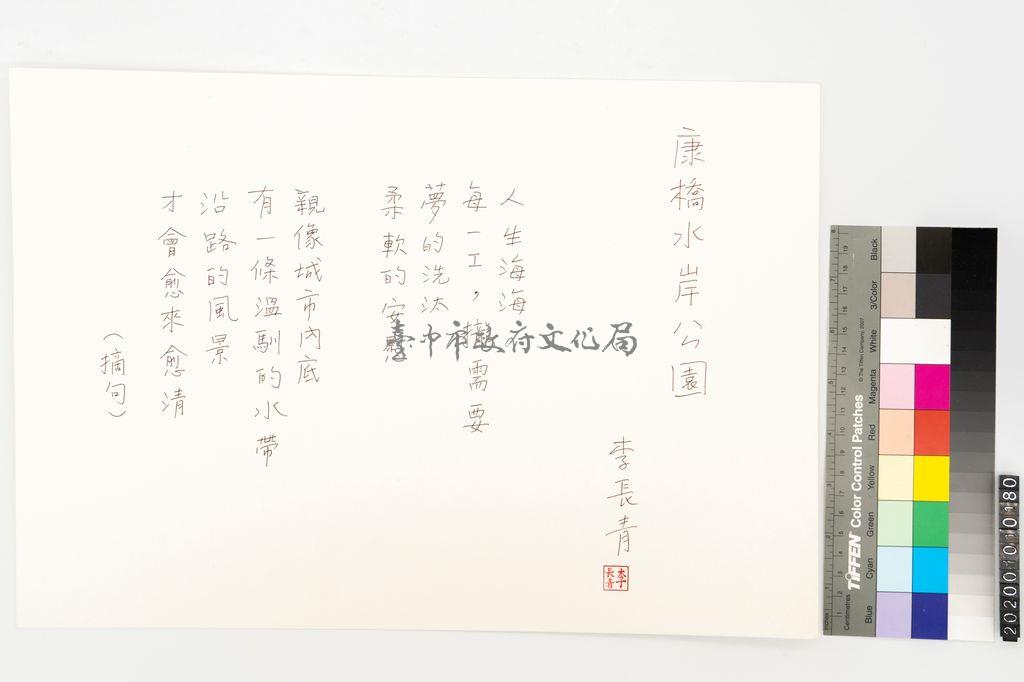 康橋水岸公園
李長青
李長青
人生海海
每一工，需要
夢的洗汰
柔軟的安慰
親像城市內底
有一條溫馴的水帶
沿路的風景
才會愈來愈清
（摘句）
臺中市政府文化局
TIFFEN Color Control Patches
© The Tiffen Company, 2007
Centimetres
Inches
Blue
Cyan
Green
Yellow
Red
Magenta
White
3/Color
Black
20200101080